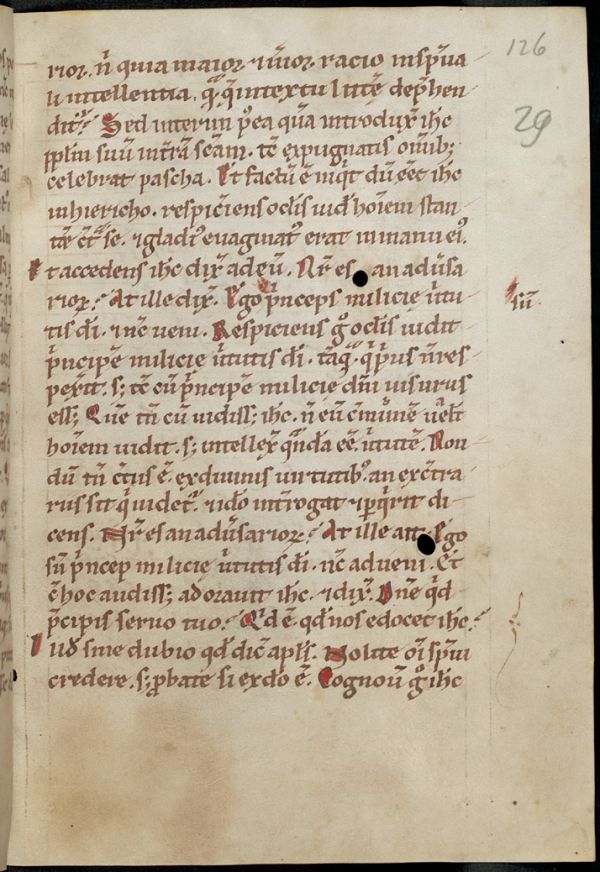 126
29
rior. n̄ quia maior ⁊ iūior. racio in sp̄ua
li intellentia. qͣ q̄ in textu litt̄e dep̄hen
dit᷑. Sed interim p̄ea quā introdux̄ ih̄c
pp̄lm suū int̄rā sc̄am. tē expugnatis om̄ib;
celebrat pascha. Et factū ē inqͥt dū eēt ih̄c
in hiericho. respiciens oclīs uid̄ hoīem stan
tē ct̄ͣ se. ⁊ gladiꝰ euaginatꝰ erat in manu eiꝰ.
Et accedens ih̄c dix̄ ad eū. Nr̄ es an adūsa
rioꝝ? At ille dix̄. Ego p̄nceps milicię ūtu
tis dī. ⁊ nc̄ veni. Respiciens gͦ oclīs uidit
pͥncipē milicię ūtutis dī. tāqͣ. qͥ pͥus n̄ res
pexit. s; tē cū pͥncipē milicię dn̄i uisurus
ess; Quē tn̄ cū uidiss; ih̄c. n̄ eū cm̄unē uel̄
hoīem uidit. s; intellex̄ qn̄dā eē ūtutē. Non
dū tn̄ ct̄us ē. ex diuinis uirtutibꝰ an ex ct̄ra
riis sit qͥ uidet᷑. ⁊ idō int̄rogat ⁊ pqͥrit di
cens. Nr̄ es an adūsarioꝝ? At ille ait. Ego
sū pͥncep milicię ūtutis dī. nc̄ adueni. Et
c̄ hoc audiss; adorauit ih̄c. ⁊ dix̄. Dn̄e qͥd
pͥcipis seruo tuo? Qͥd ē qd̄ nos edocet ih̄c?
Illud sine dubio qd̄ dic̄ apl̄s. Nolite om̄i sp̄ui
credere. s; p̄bate si ex dō ē. Cognoū gͦ ih̄c
sū.